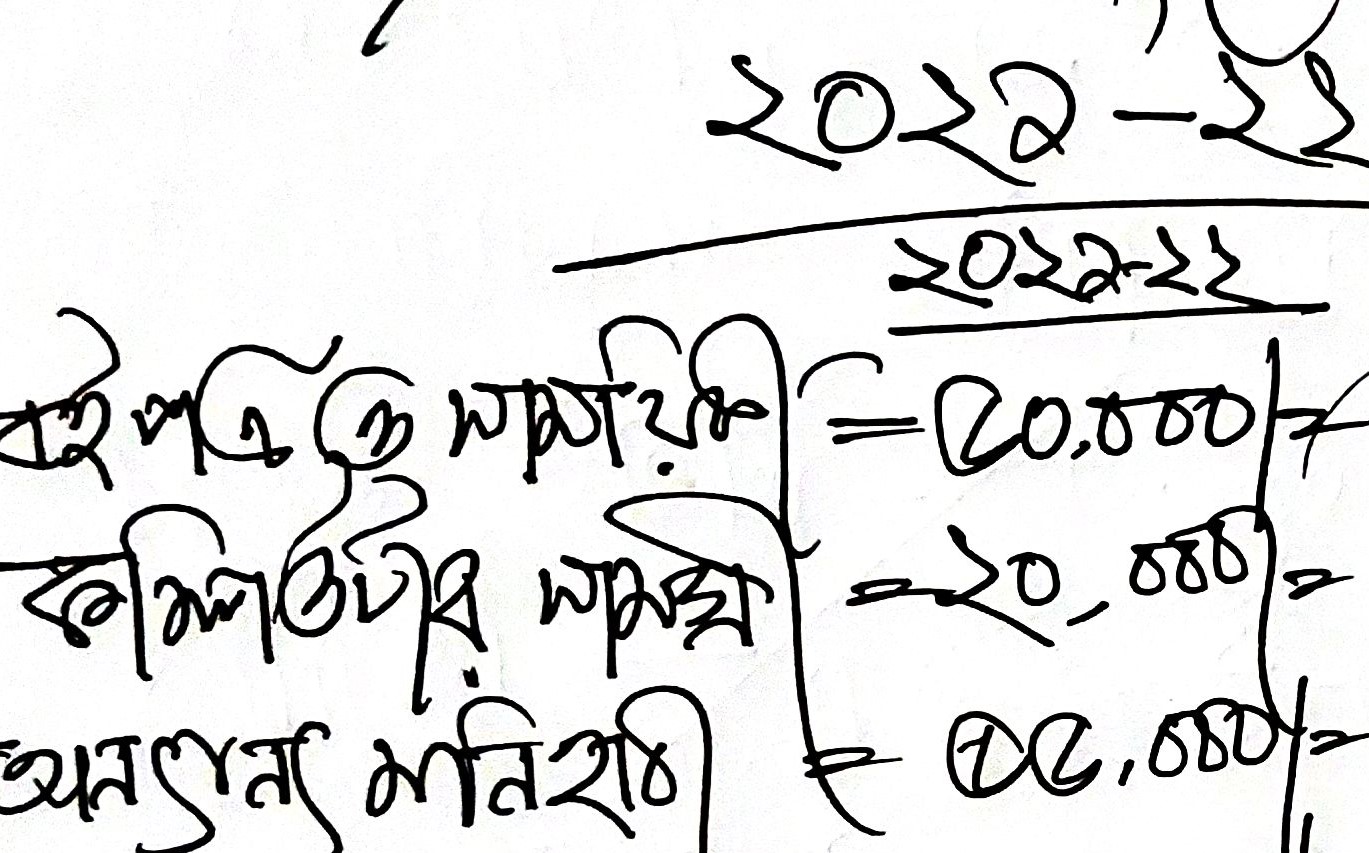 ২০২১-২২
২০২১-২২
বই পত্র ও সাময়িকী = ৫০,০০০/=
কম্পিউটার সামগ্রী = ২০,০০০/=
অন্যান্য মনিহারী = ৫৫,০০০/=